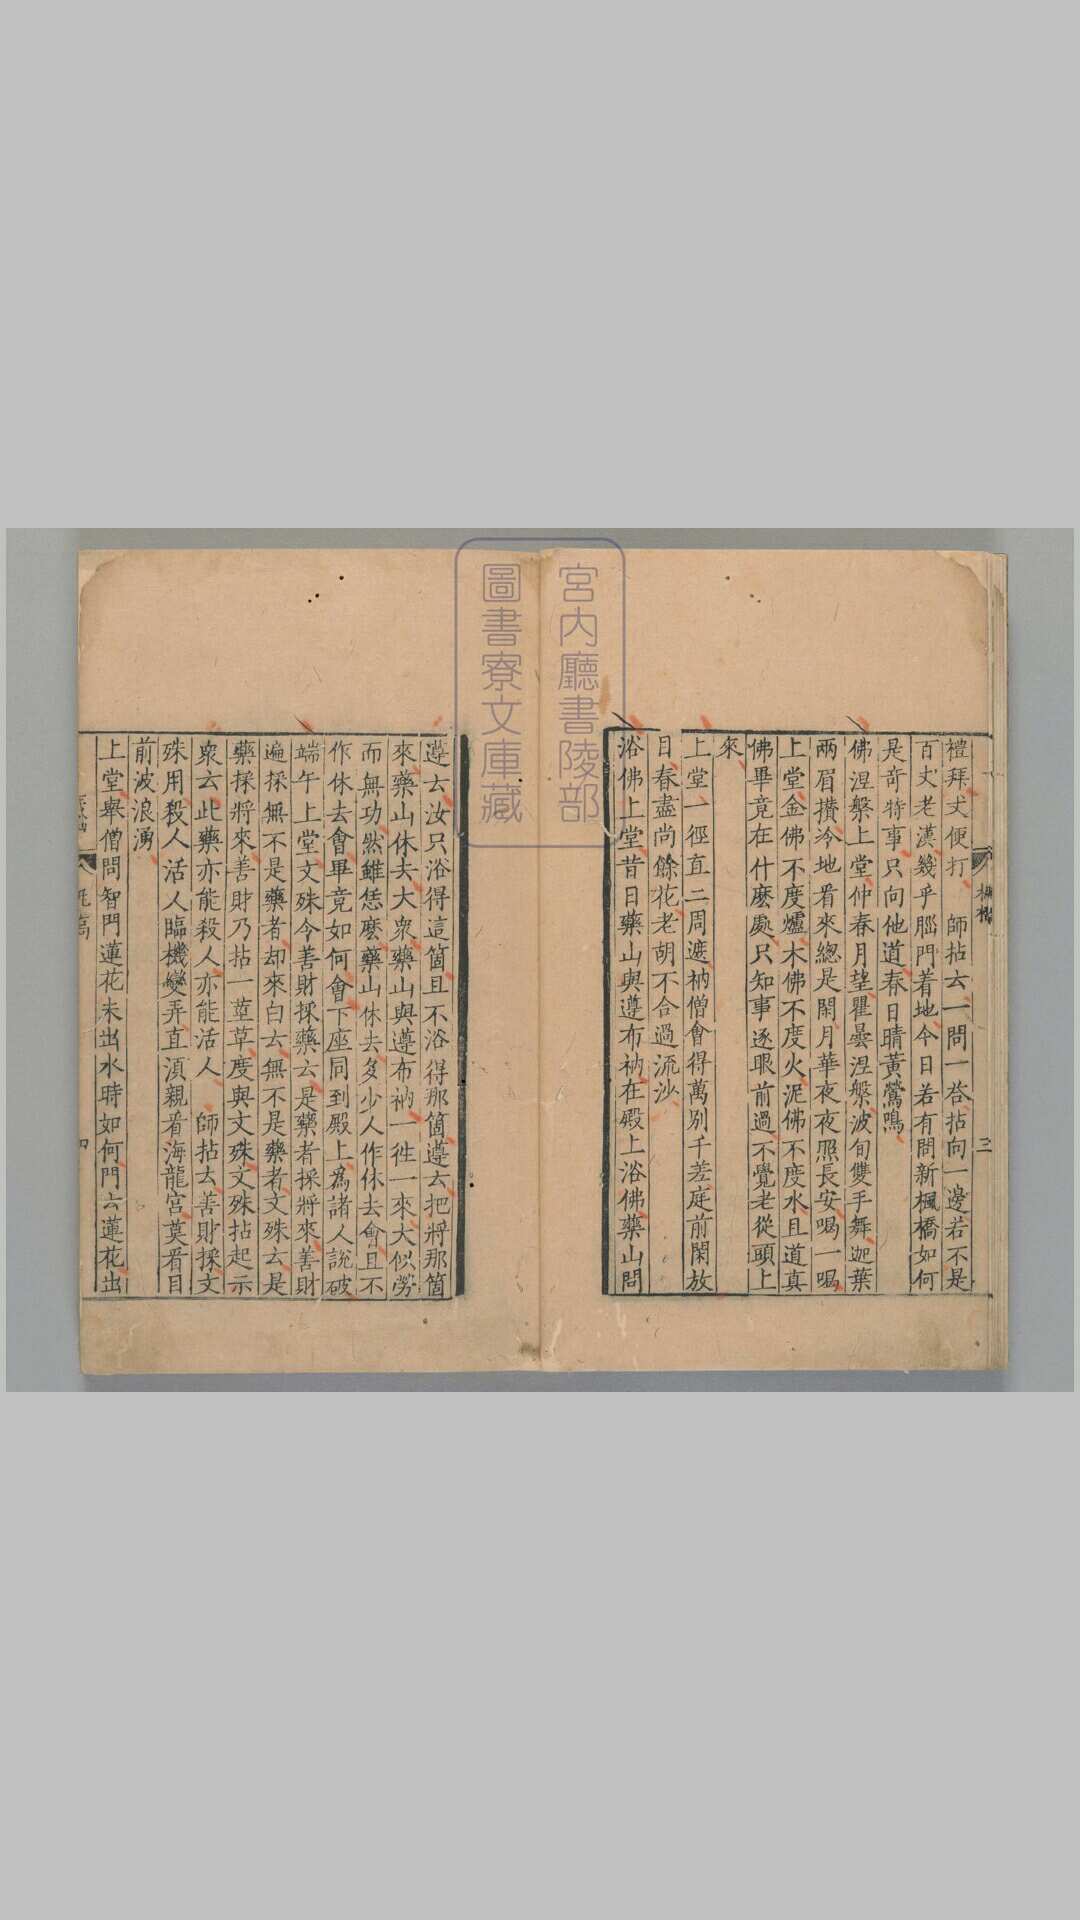 禮拜丈便打　師拈云一問一荅拈向一邊若不是
百丈老漢幾乎腦門着地今日若有問新楓橋如何
是奇特事只向他道春日晴黃鶯鳴
佛涅槃上堂仲春月望瞿曇涅槃波旬雙手舞迦葉
兩眉攢冷地看來總是閑月華夜夜照長安喝一喝
上堂金佛不度爐木佛不度火泥佛不度水且道真
佛畢竟在什麽處只知事逐眼前過不覺老從頭上
來
上堂一徑直二周遮衲僧會得萬別千差庭前閑放
目春盡尚餘花老胡不合過流沙
浴佛上堂昔日藥山與遵布衲在殿上浴佛藥山問
三
宮内廳書陵部
圖書寮文庫藏
遵云汝只浴得這箇且不浴得那箇遵云把將那箇
來藥山休去大衆藥山與遵布衲一徃一來大似勞
而無功然雖恁麽藥山休去多少人作休去會且不
作休去會畢竟如何會下座同到殿上爲諸人說破
端午上堂文殊令善財採藥云是藥者採將來善財
遍採無不是藥者却來白云無不是藥者文殊云是
藥採將來善財乃拈一莖草度與文殊文殊拈起示
衆云此藥亦能殺人亦能活人　師拈云善財採文
殊用殺人活人臨機變弄直湏親看海龍宮莫看目
前波浪湧
上堂舉僧問智門蓮花未出水時如何門云蓮花出
四